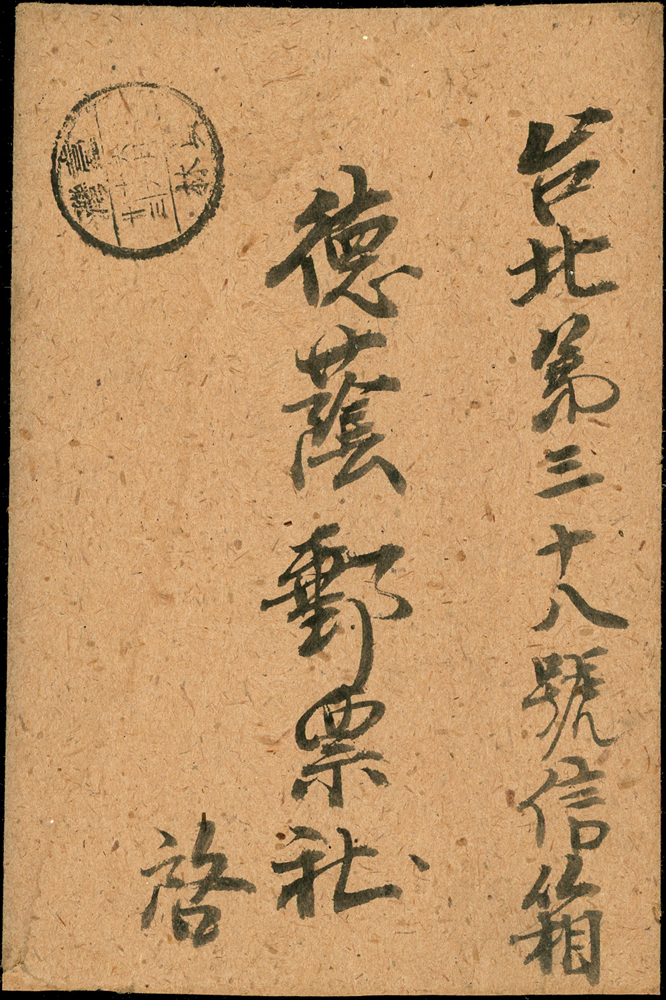 台北第三十八號信箱
德蔭郵票社
啓
臺灣